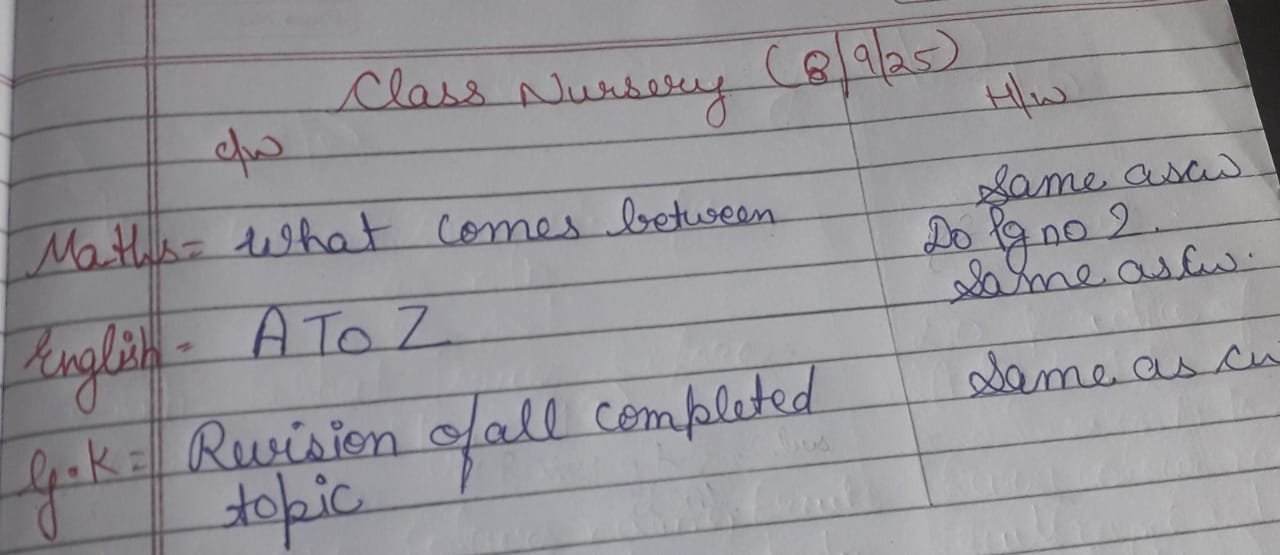 Class Nursery (8/9/25)
C/W H/W
Maths = What comes between Same as cw
Do Pg no 2.
English = A To Z Same as Cw.
G.K = Revision of all completed Same as cw
topic